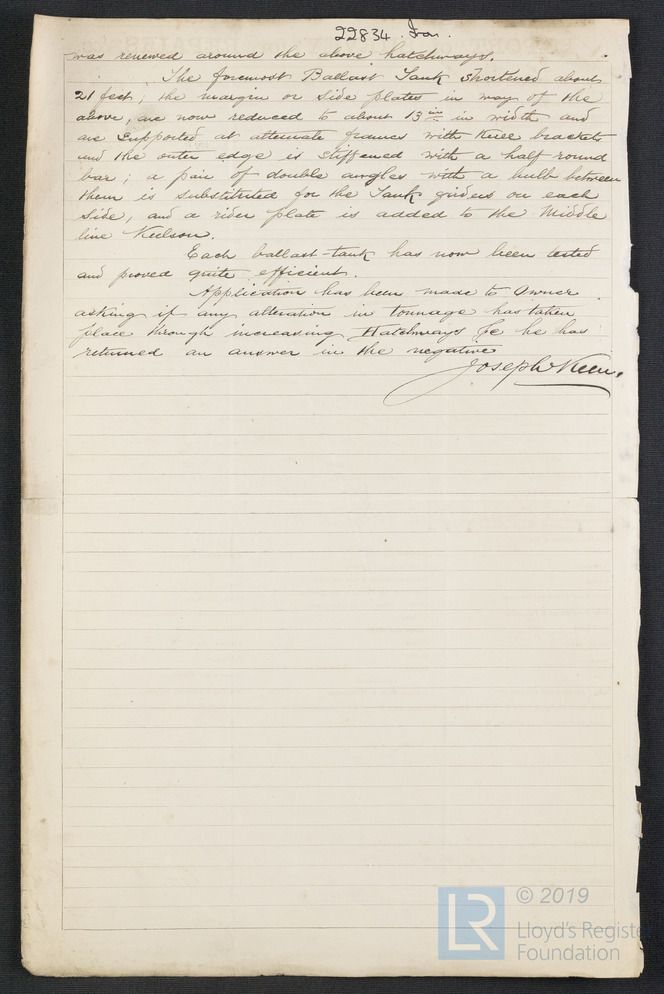 22834. Iron.
was renewed around the above hatchways.
The foremost Ballast Tank shortened about
21 feet; the margin or side plates in way of the
above, are now reduced to about 13 ins in width and
are supported at alternate frames with knee brackets
and the outer edge is stiffened with a half round
bar; a pair of double angles with a bulb between
them is substituted for the Tank girders on each
side, and a rider plate is added to the Middle
line Keelson.
Each ballast-tank has now been tested
and proved quite efficient.
Application has been made to Owner
asking if any alteration in tonnage has taken
place through increasing Hatchways &c he has
returned an answer in the negative
Joseph Keen.
© 2019
LR
Lloyd's Register
Foundation